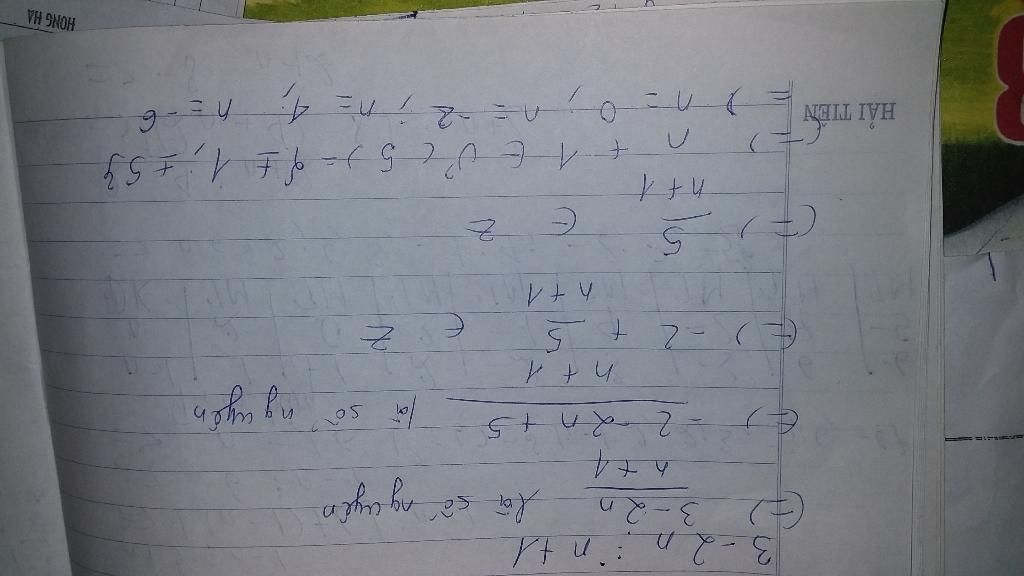 3-2n ⋮ n+1
(=) 3-2n
n+1 là số nguyên
(=) -2-2n+5
n+1 là số nguyên
(=) -2 + 5
n+1 ∈ Z
(=) 5
n+1 ∈ Z
(=) n + 1 ∈ Ư(5) = {±1; ±5}
=) n = 0; n = -2; n = 1; n = -6
HẢI TIẾN
HONG HA